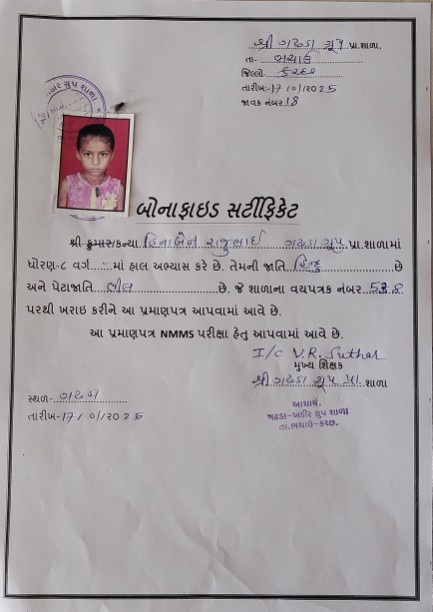 શ્રી ગઢડા ગ્રુપ પ્રા.શાળા,
તા- ભચાઉ
જિલ્લો. કચ્છ
તારીખ:-17/0/2025
જાવક નંબર 18
ગ્રુપ શાળા
બોનાફાઇડ સર્ટીફિકેટ
શ્રી કુમાર/કન્યા હિનાબેન રાજુભાઇ ગઢડા ગ્રુપ પ્રા.શાળામાં
ધોરણ-૮ વર્ગ - માં હાલ અભ્યાસ કરે છે. તેમની જાતિ હિન્દુ છે
અને પેટાજાતિ ભીલ છે. જે શાળાના વયપત્રક નંબર 538
પરથી ખરાઇ કરીને આ પ્રમાણપત્ર આપવામાં આવે છે.
આ પ્રમાણપત્ર NMMS પરીક્ષા હેતુ આપવામાં આવે છે.
I/C V.R. Suthar
મુખ્ય શિક્ષક
શ્રી ગઢડા ગ્રુપ પ્રા. શાળા
સ્થળ- ગઢડા
આચાર્ય.
તારીખ-17/0/2025
ગઢડા-ખડીર ગ્રુપ શાળા
તા.ભચાઉ-કચ્છ.